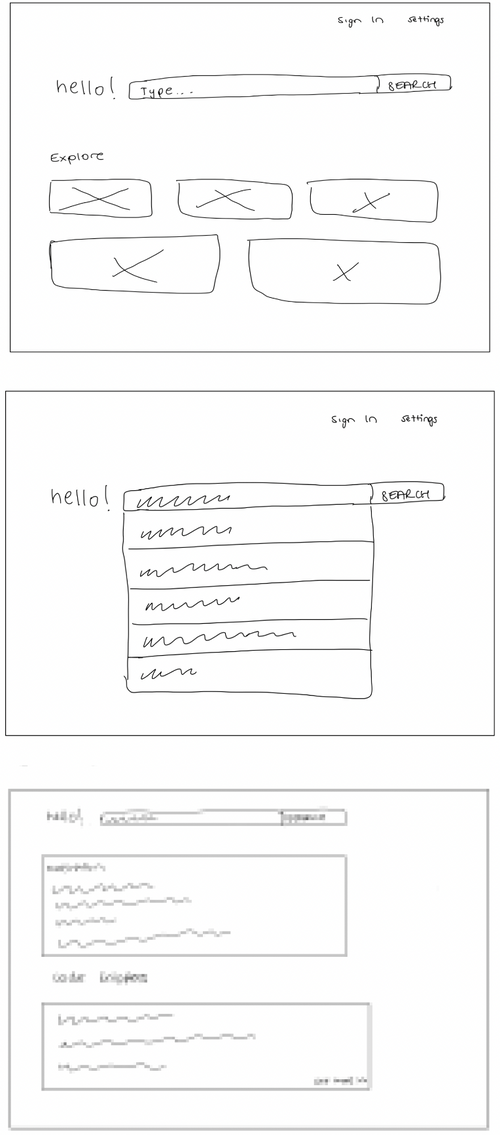 Sign In settings
hello! Type... SEARCH
Explore
Sign In settings
hello! SEARCH
hello!
Code Snippets